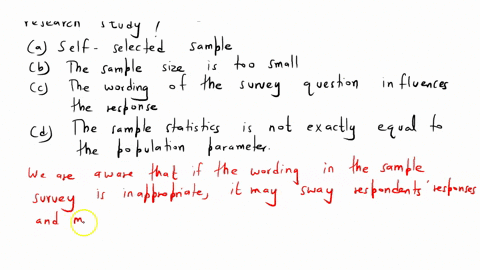 research study?
(a) Self-selected sample
(b) The sample size is too small
(c) The wording of the survey question influences
the response
(d) The sample statistics is not exactly equal to
the population parameter.
We are aware that if the wording in the sample
survey is inappropriate, it may sway respondents' responses
and m